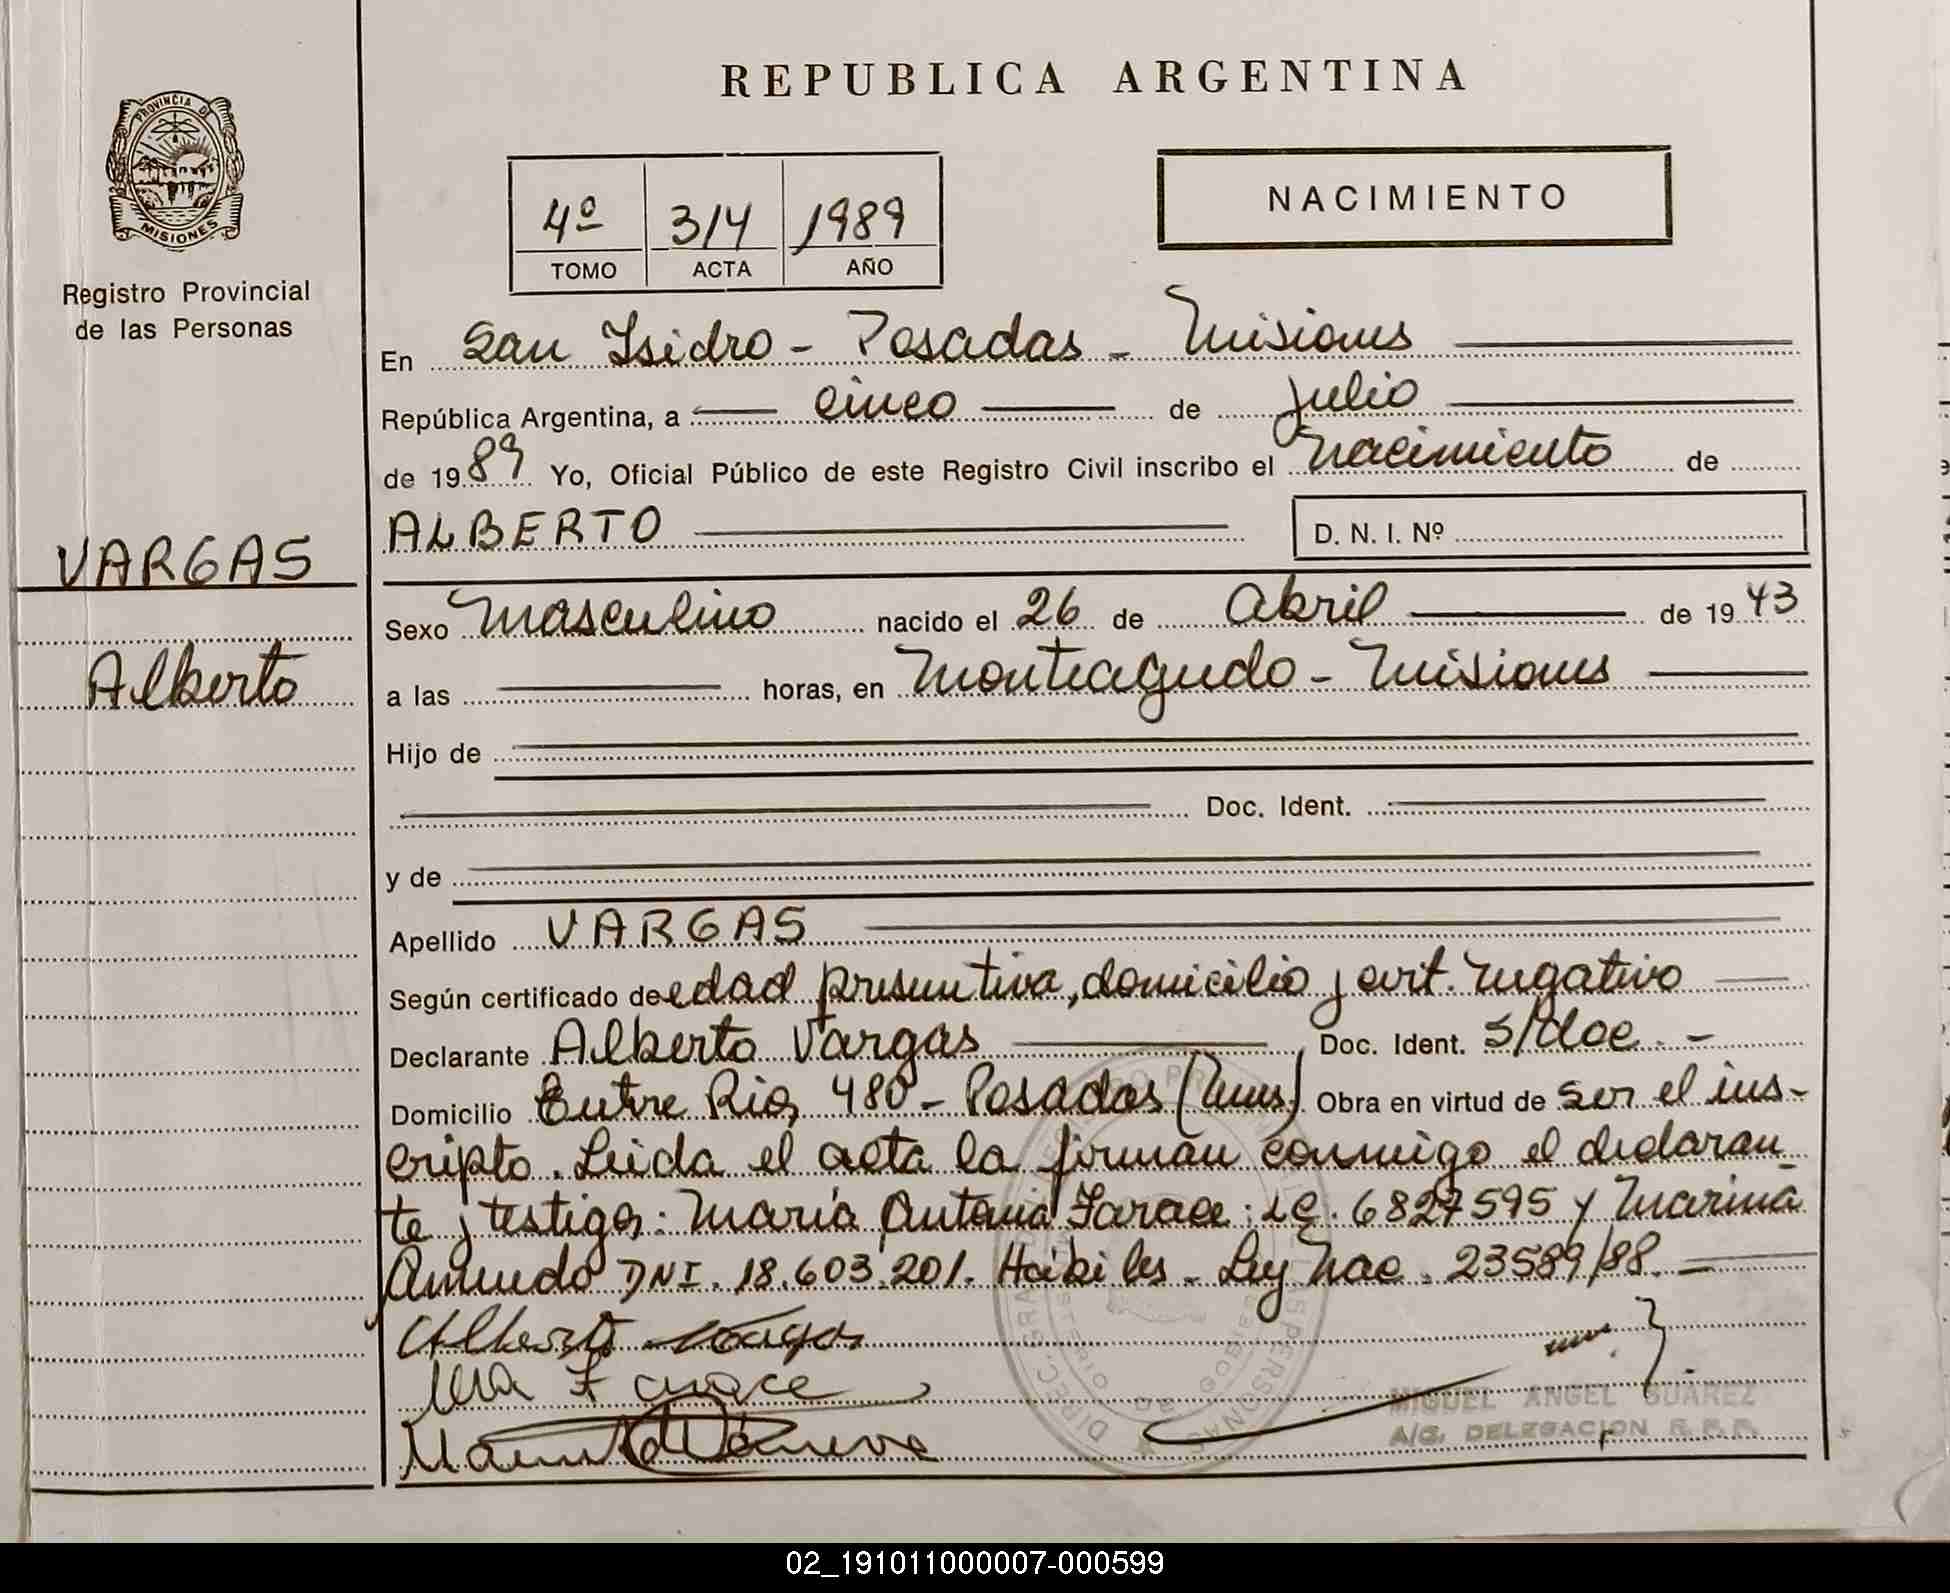 REPUBLICA ARGENTINA
PROVINCIA DE
MISIONES
Registro Provincial
de las Personas
4º 314 1989
TOMO ACTA AÑO
NACIMIENTO
En San Isidro - Posadas - Misiones
República Argentina, a cinco de julio
de 1989 Yo, Oficial Público de este Registro Civil inscribo el nacimiento de
ALBERTO D. N. I. Nº
VARGAS
Alberto
Sexo Masculino nacido el 26 de Abril de 1943
a las horas, en Monteagudo - Misiones
Hijo de
Doc. Ident.
y de
Apellido VARGAS
Según certificado de edad presuntiva, domicilio y cert. negativo
Declarante Alberto Vargas Doc. Ident. S/doc. -
Domicilio Entre Rios 480 - Posadas (Mnes) Obra en virtud de ser el ins-
cripto. Leida el acta la firman conmigo el declaran-
te y testigos: Maria Antonia Farace: LC. 6827595 y Marina
DNI. 18.603.201. Hábiles - Ley Nac. 23589/88. -
Alberto Vargas
Ma Farace
MIGUEL ANGEL SUAREZ
A/C. DELEGACION R. P. P.
02_191011000007-000599